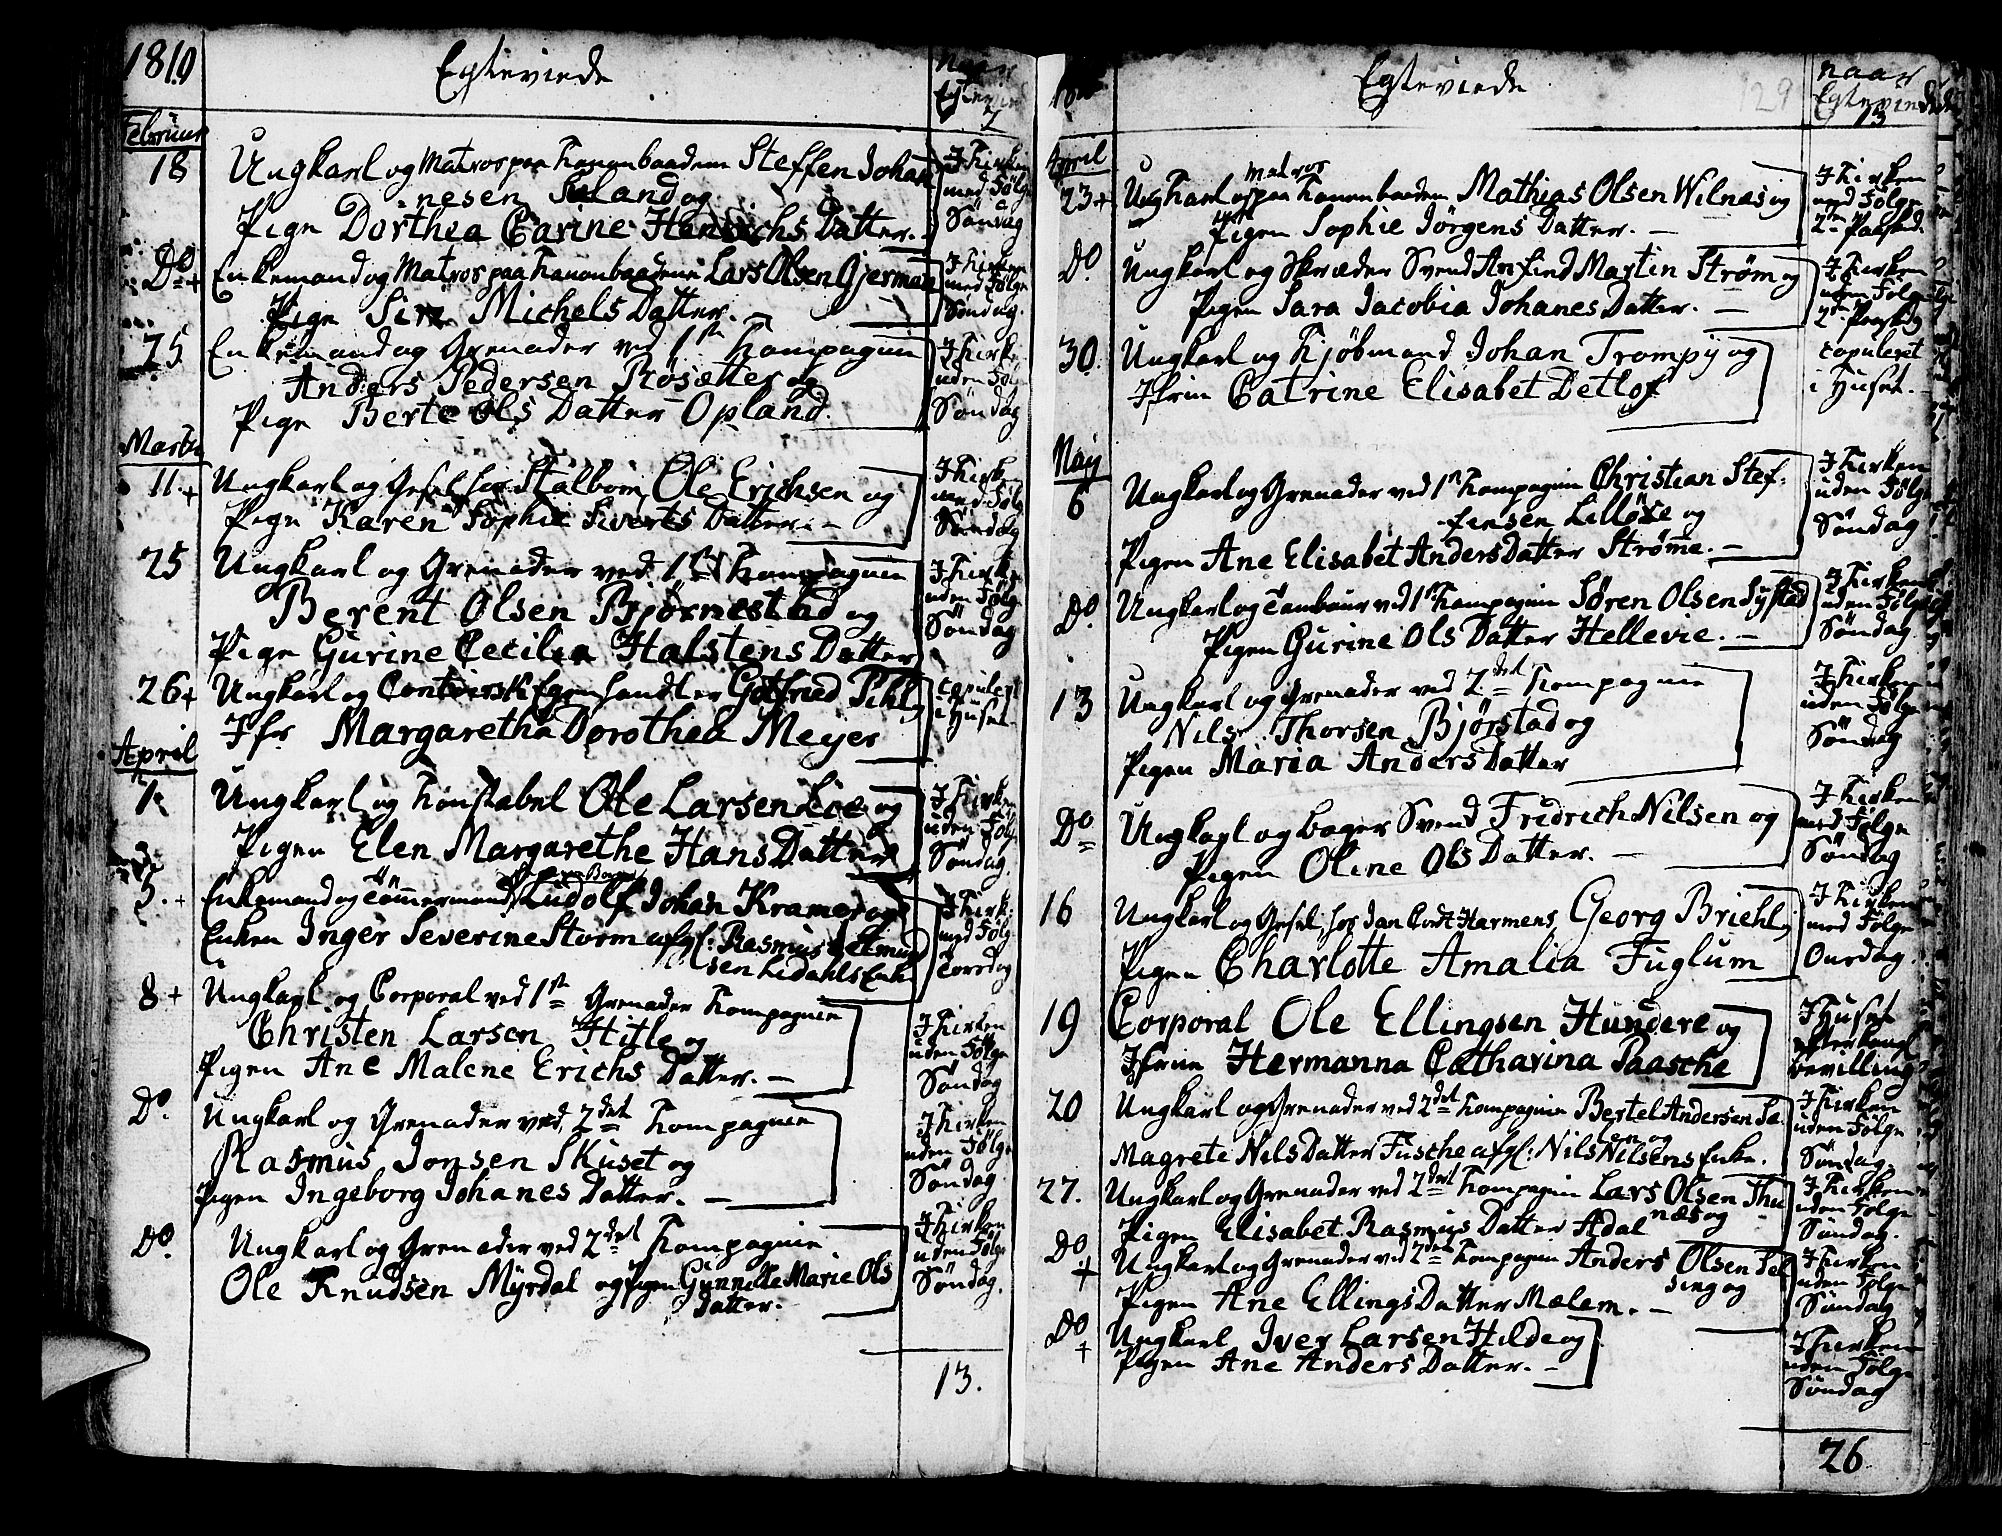 1810
Egteviede
naar
Egteviede
7
Februar
18 Ungkarl og Matros paa Kanonbaadene Steffen Johan
nesen Seland og
Pige Dorthea Carine Henrichs Datter.
J Kirken
med Følge
Søndag
Do + Enkemand og Matros paa Kanonbaadene Lars Olsen Gjerman
Pige Siri Michels Datter. —
J Kirken
med Følge
Søndag.
25 Enkemand og Grenader ved 1ste Kompagnie
Anders Pedersen Røsætter og
Pige Berte Ols Datter Opland.
J Kirken
uden Følge
Søndag
Martii
11. + Ungkarl og Gesel hos Stalbom Ole Erichsen og
Pige Karen Sophie Siverts Datter. —
J Kirken
med Følg
Søndag
25 Ungkarl og Grenader ved 1ste Kompagnie
Berent Olsen Bjørnestad og
Pige Gurine Cecilia Halstens Datter
J Kirken
uden Følge
Søndag
26 + Ungkarl og Contoirsk Egenhandler Gotfried Pihl og
Jfr Margaretha Dorothea Meyer
copuleret
i Huset
April
1. Ungkarl og Konstabel Ole Larsen Loe og
Pigen Elen Margarethe Hans Datter
J Kirken
uden Følge
Søndag.
5. + Enkemand og Tømmermand Ludolf Johan Kramer og
Enken Inger Severine Storm afgl: Rasmus
sen Lidahls Enke
J Kirk
med Følg
Torsdag
8 + Ungkarl og Corporal ved 1ste Grenader Kompagnie
Christen Larsen Hitle og
Pigen Ane Malene Erichs Datter. —
J Kirken
uden Følge
Søndag
Do. Ungkarl og Grenader ved 2det Kompagnie
Rasmus Jonsen Skuset og
Pigen Ingeborg Johanes Datter. —
J Kirken
uden Følge
Søndag
Do. Ungkarl og Grenader ved 2det Kompagnie
Ole Knudsen Myrdal og Pigen Gunnille Marie Ols
Datter.
J Kirken
uden Følge
Søndag.
13.
Egteviede
129
naar
Egteviede
13
April
matros
23 + Ungkarl og paa Kanonbaaden Mathias Olsen Wilnæs og
Pigen Sophie Jørgens Datter. —
J Kirken
med Følge
2den Paaskd.
Do. Ungkarl og Skræder Svend Anfind Martin Strøm og
Pigen Sara Jacobia Johanes Datter. —
J Kirken
uden Følge
2den Paaskdg
30. Ungkarl og Kjøbmand Johan Trompy og
Jfrin Catrine Elisabet Detlof
copuleret
i Huset.
May
6 Ungkarl og Grenader ved 1ste Kompagnie Christian Stef-
fensen Lilløse og
Pigen Ane Elisabet Anders Datter Strømme. —
J Kirken
uden Følge
Søndag
Do. Ungkarl og Tambour ved 1ste Kompagnie Søren Olsen Systad
Pigen Gurine Ols Datter Hellevie. —
J Kirken
uden Følge
Søndag
13 Ungkarl og Grenader ved 2det Kompagnie
Nils Thorsen Bjørstad og
Pigen Maria Anders Datter
J Kirken
uden Følge
Søndag
Do Ungkarl og bager Svend Fridrich Nilsen og
Pigen Oline Ols Datter. —
J Kirken
med Følge
Søndag
16 Ungkarl og Gesel, hos Jan Cordt Harmens, Georg Briehl og
Pigen Charlotte Amalia Fuglum
J Kirken
med Følge
Onsdag.
19 Corporal Ole Ellingsen Hundere og
Jfrin Hermanna Catharina Paasche
J Huset
efter kongl
bevilling
20 Ungkarl og Grenader ved 2det Kompagnie Bertel Andersen Sæ
en og
Magrete Nils Datter Fusche afgl: Nils Nilsens Enke.
J Kirken
uden Følge
Søndag
27. Ungkarl og Grenader ved 2det Kompagnie Lars Olsen Thu
næs og
Pigen Elisabet Rasmus Datter Adal
J Kirken
uden Følge
Søndag.
Do + Ungkarl og Grenader ved 2det Kompagnie Anders Olsen Sel
sing og
Pigen Ane Ellings Datter Mælem. —
J Kirken
uden Følge
Søndag
Do + Ungkarl Iver Larsen Hilde og
Pigen Ane Anders Datter. —
J Kirken
uden Følge
Søndag
26